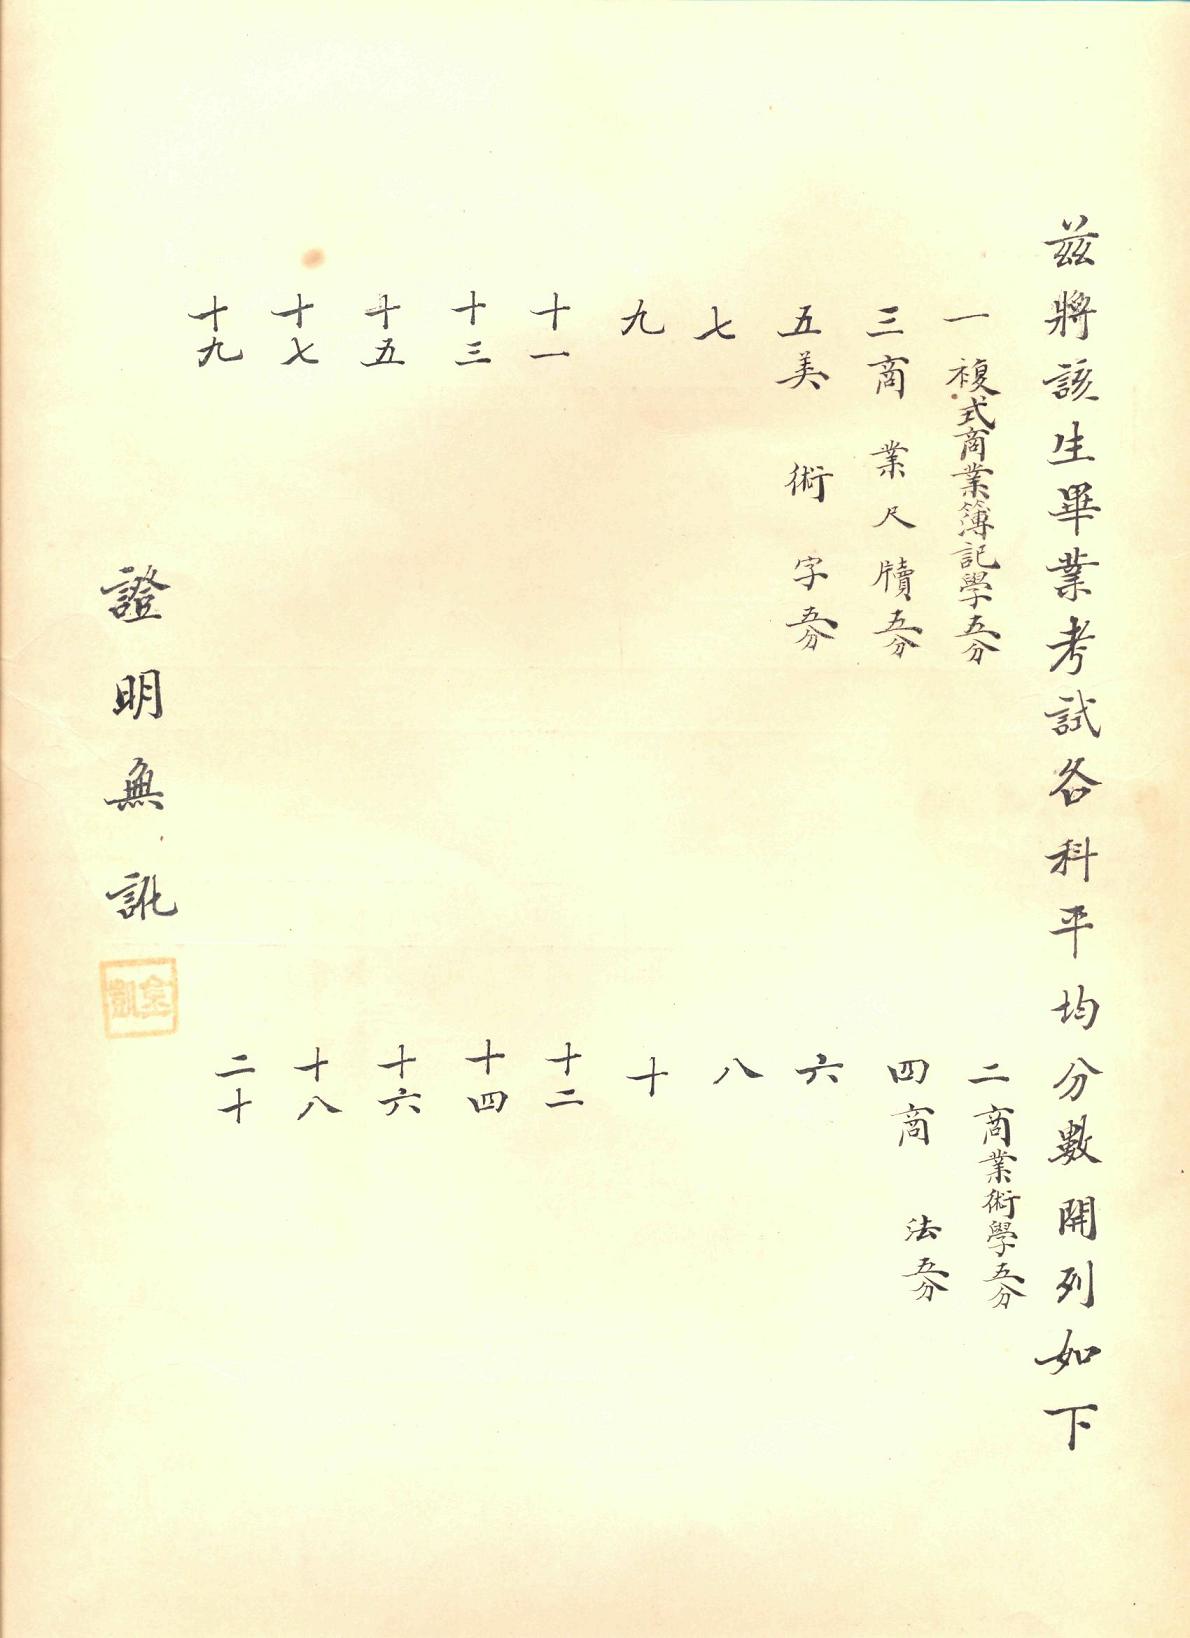 茲將該生畢業考試各科平均分數開列如下
一複式商業簿記學五分
二商業術學五分
三商業尺牘五分
四商法五分
五美術字五分
六
七
八
九
十
十一
十二
十三
十四
十五
十六
十七
十八
十九
二十
證明無訛